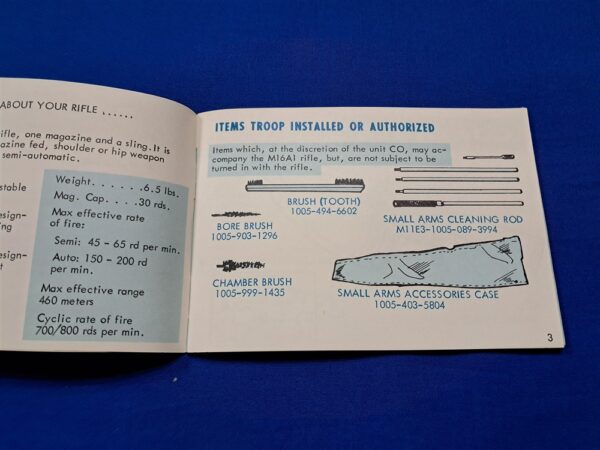 ABOUT YOUR RIFLE ......
ifle, one magazine and a sling. It is
azine fed, shoulder or hip weapon
semi-automatic.
stable
esign-
ing
esign-
t
Weight. . . . . .6.5 lbs.
Mag. Cap. . . . .30 rds.
Max effective rate
of fire:
Semi: 45 - 65 rd per min.
Auto: 150 - 200 rd
per min.
Max effective range
460 meters
Cyclic rate of fire
700/800 rds per min.
ITEMS TROOP INSTALLED OR AUTHORIZED
Items which, at the discretion of the unit CO, may ac-
company the M16A1 rifle, but, are not subject to be
turned in with the rifle.
BRUSH (TOOTH)
1005-494-6602
BORE BRUSH
1005-903-1296
SMALL ARMS CLEANING ROD
M11E3-1005-089-3994
CHAMBER BRUSH
1005-999-1435
SMALL ARMS ACCESSORIES CASE
1005-403-5804
3